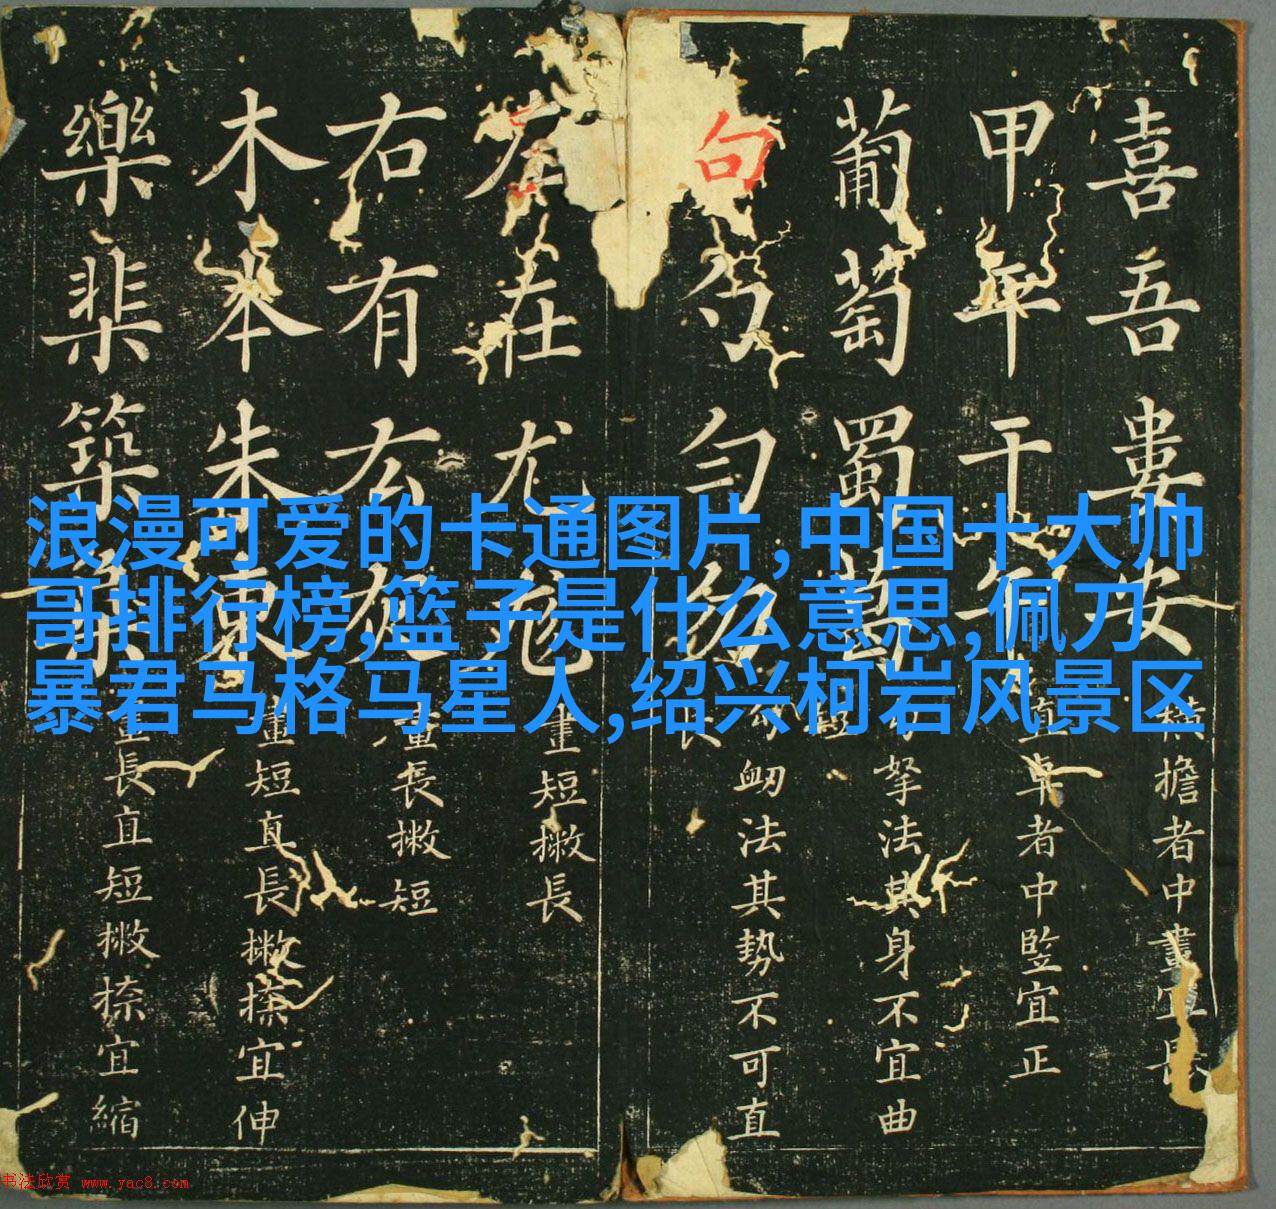 喜吾婁安
橫擔者中畫宜
甲平干
直卓者中竪宜正
葡萄蜀
挐法其身不宜曲
句勹勻勿
衂法其勢不可直
左在尤尨
畫短撇長
右有厷灰
畫長撇短
木本朱東
畫短直長撇捺宜伸
樂棐築
畫長直短撇捺宜縮
浪漫可爱的卡通图片,中国十大帅
哥排行榜,篮子是什么意思,佩刀
暴君马格马星人,绍兴柯岩风景区
书法欣赏 www.yac8.com